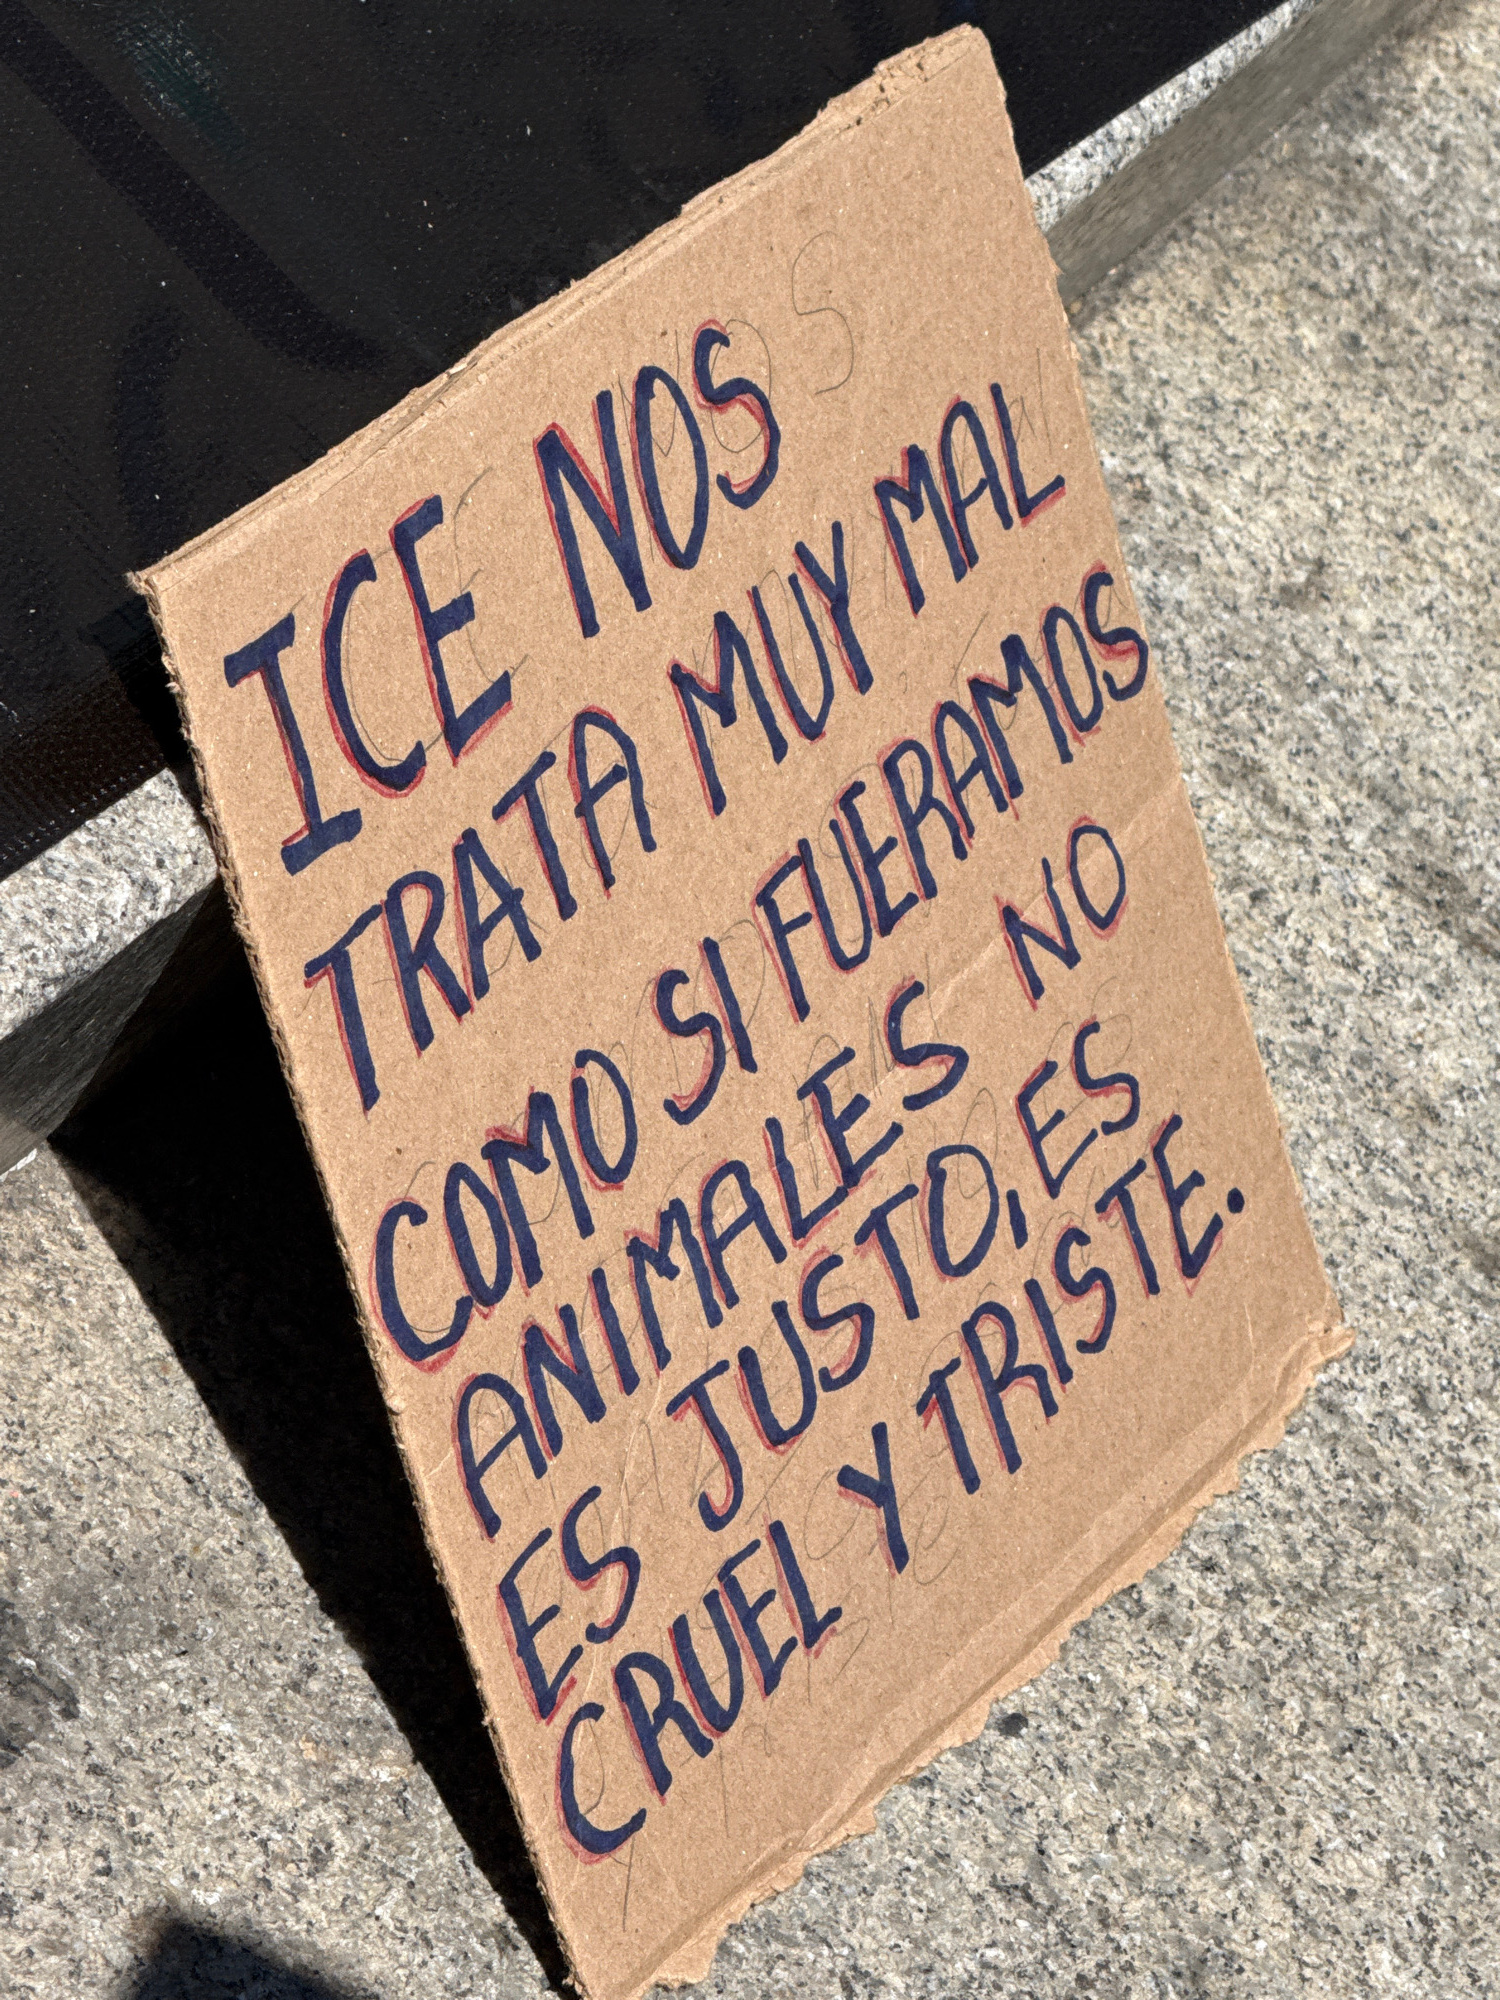 ICE NOS
TRATA MUY MAL
COMO SI FUERAMOS
ANIMALES NO
ES JUSTO, ES
CRUEL Y TRISTE.